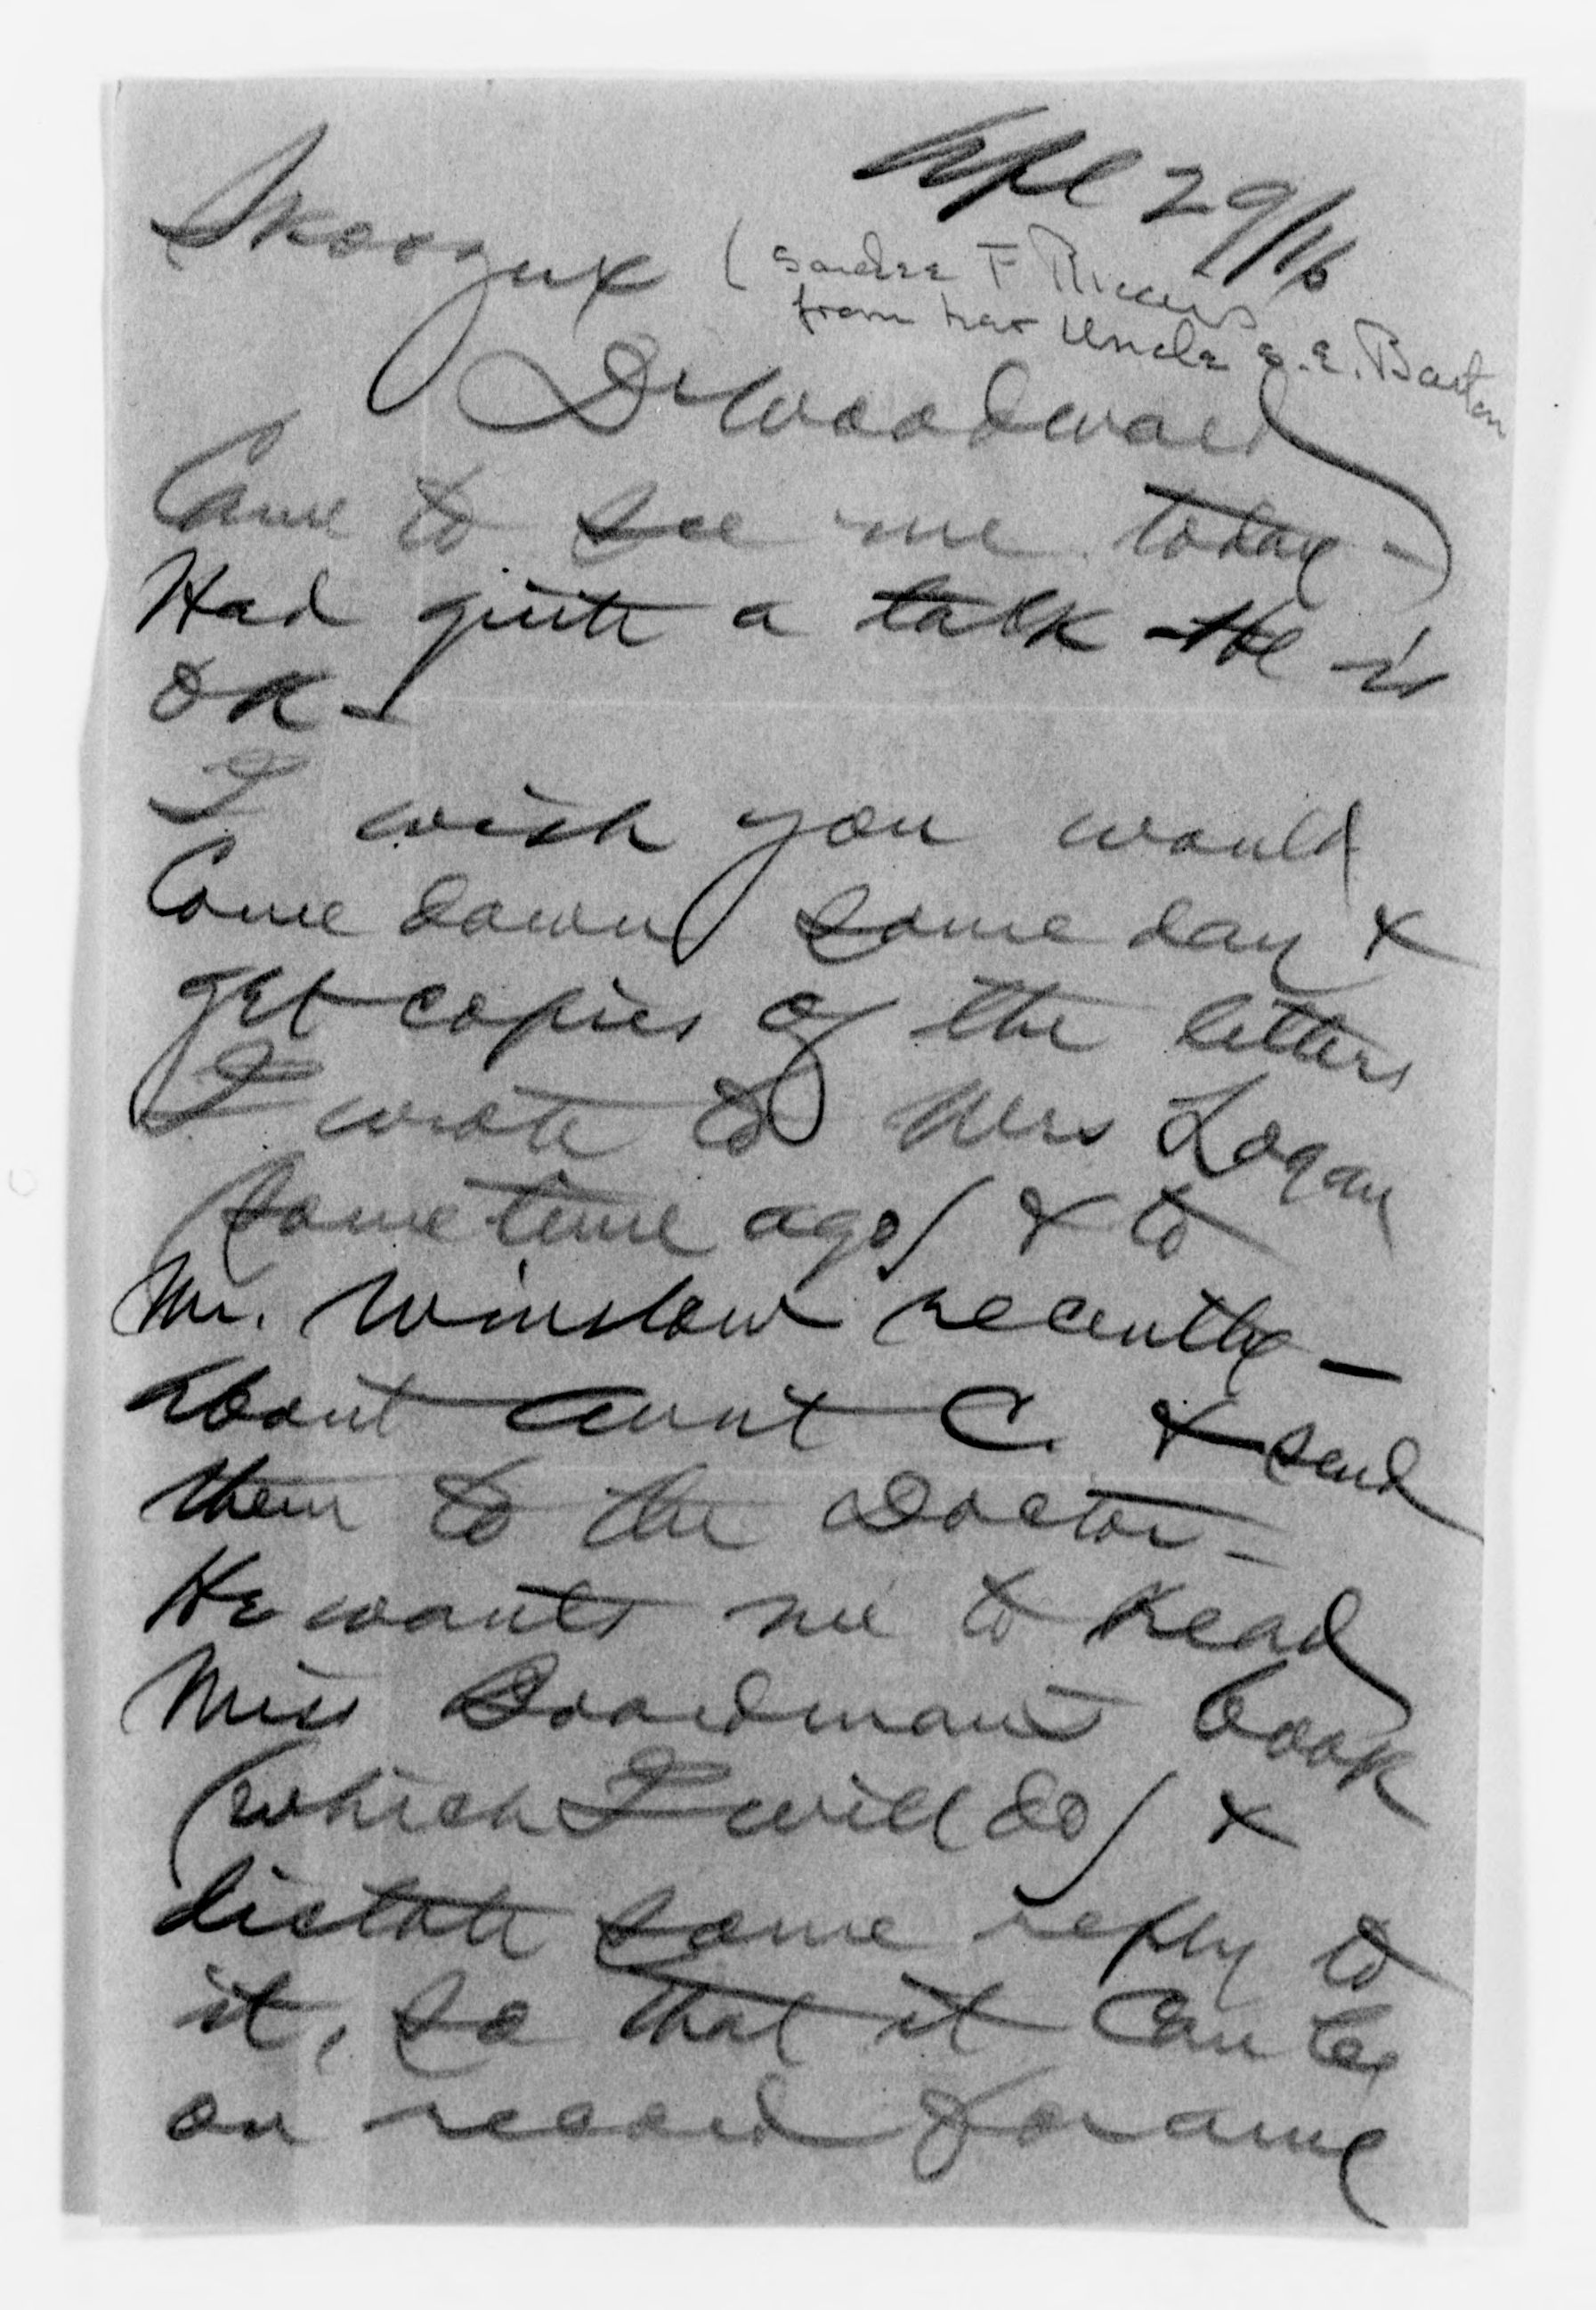 Apl 29/16
Skoozux
( Saidee F Riccius
from her Uncle S. E. Barton
Dr Woodward
Came to see me today -
Had quite a talk - He is
OK -
I wish you would
Come down some day &
get copies of the letters
I wrote to Mrs Logan
(sometime ago) & to
Mr. Winslow recently -
about Aunt C. & send
them to the Doctor -
He wants me to read
Miss Boardman's book
(which I will do) &
dictate some reply to
it, so that it can be
on record for any